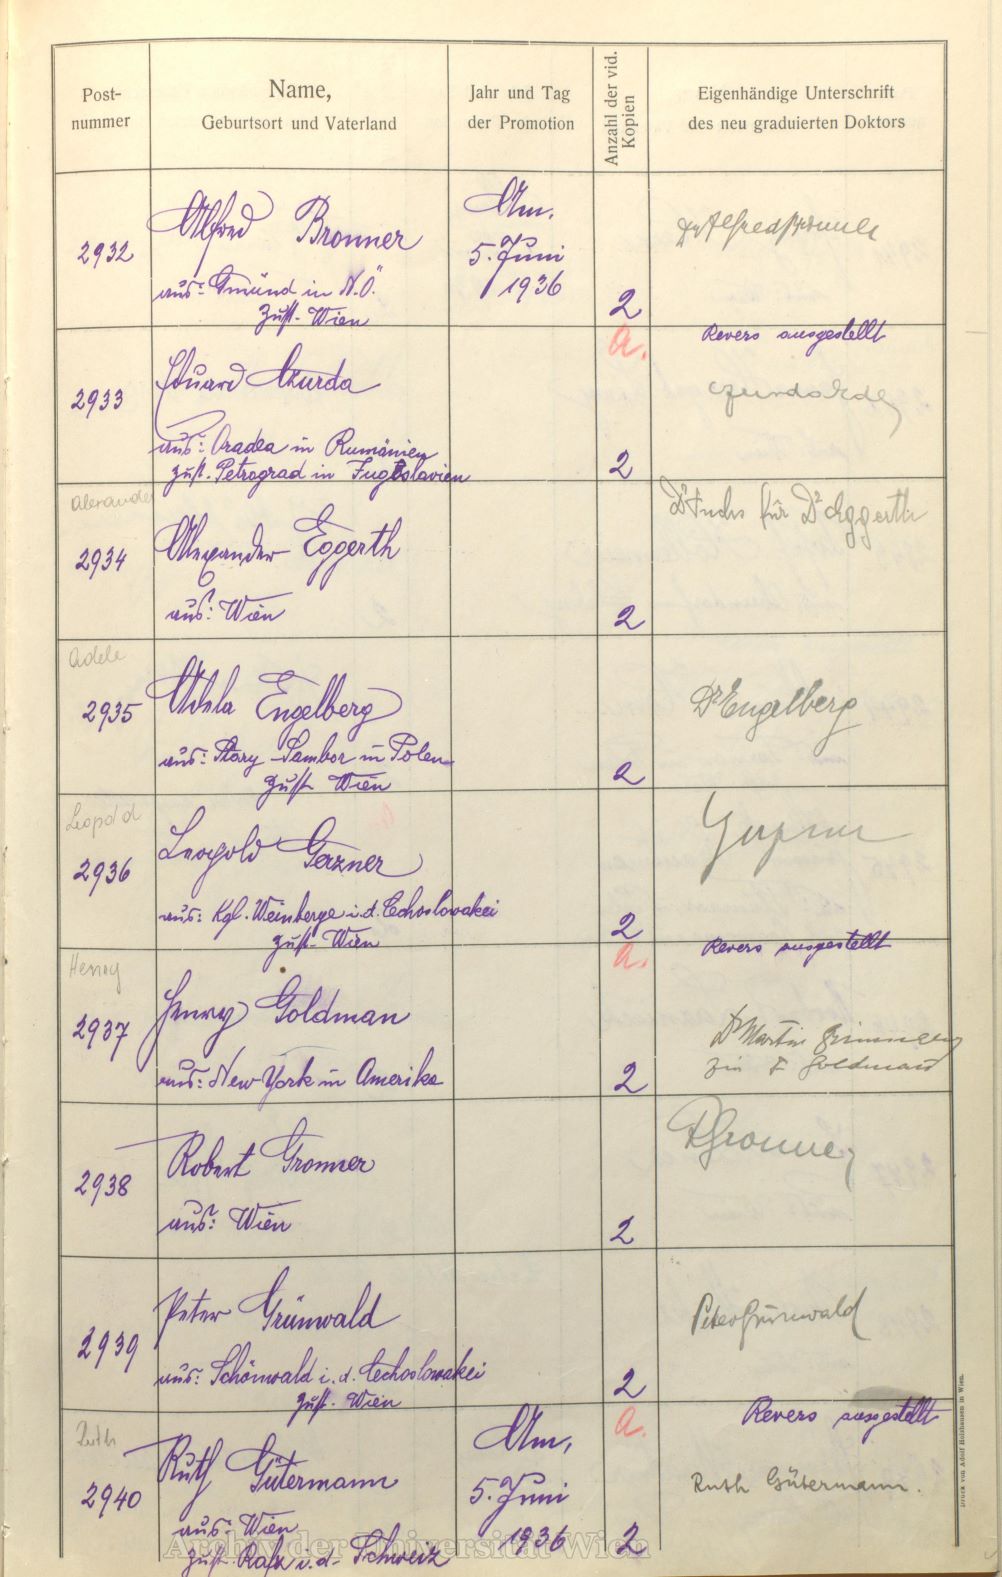 Post-
nummer
Name,
Geburtsort und Vaterland
Jahr und Tag
der Promotion
Anzahl der vid.
Kopien
Eigenhändige Unterschrift
des neu graduierten Doktors
2932
Alfred Bronner
aus: Gmünd in N.Ö.
Zust. Wien
Am.
5. Juni
1936
2
Dr Alfred
2933
Eduard Czurda
aus: Oradea in Rumänien
zust. Petrograd in Jugoslavien
a.
2
Revers ausgestellt
Alexander
2934
Alexander Eggerth
aus: Wien
2
Dr Fuchs für Dr Eggerth
Adele
2935
Adela Engelberg
aus: Stary-Sambor in Polen
zust. Wien
2
Dr Engelberg
Leopold
2936
Leopold Gerzner
aus: Kgl. Weinberge i. d. Cechoslowakei
zust. Wien
2
Henry
2937
Henry Goldman
aus: New York in Amerika
a.
2
Revers ausgestellt
Dr Martin
Goldman
2938
Robert Gronner
aus: Wien
2
2939
Peter Grünwald
aus: Schönwald i. d. Cechoslowakei
zust. Wien
2
Peter Grünwald
Ruth
2940
Ruth Gütermann
aus: Wien
zust. Rafz i. d. Schweiz
Am.
5. Juni
1936
a.
2
Revers ausgestellt
Ruth Gütermann.
Druck von Adolf Holzhausen in Wien.
Archiv der Universität Wien